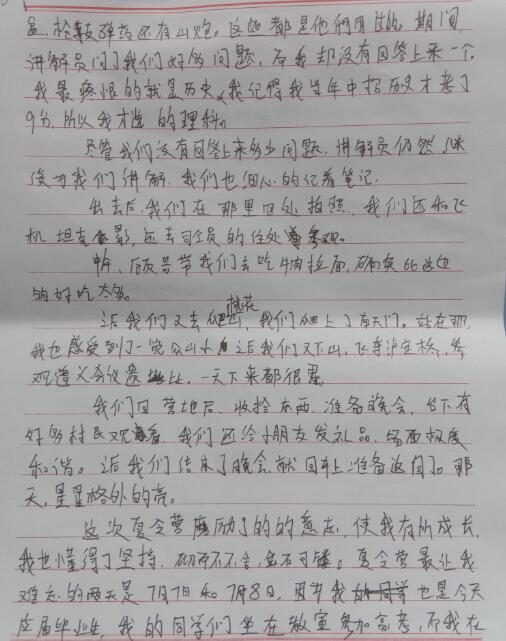 盔、枪支弹药还有山炮。这些都是他们用过的。期间,
讲解员问了我们好多问题,而我却没有回答上来一个,
我最疼恨的就是历史,我记得我当年中招历史才考了
9分,所以我才选的理科。
尽管我们没有回答上来多少问题,讲解员仍然继
续为我们讲解,我们也细心的记着笔记。
出去后,我们在那里四处拍照,我们还和飞
机坦克合影,还去司令员的住处参观。
中午,欣哥带我们去吃牛肉拉面,确实比这边
的好吃太多。
之后我们又去爬桃花山,我们爬上了南天门。站在那,
我也感受到了一览众山小,之后我们又下山,飞夺泸定桥,参
观遵义会议遗址,一天下来都很累。
我们回营地后,收拾东西,准备晚会,台下有
好多村民观看,我们还给小朋友发礼品,场面极度
和谐。之后我们结束了晚会,就回车上准备返回了。那
天,星星格外的亮。
这次夏令营磨励了的的意志,使我有所成长,
我也懂得了坚持,锲而不舍,金石可镂。夏令营最让我
难忘的两天是7月7日和7月8日,因为我也是今天
应届毕业生,我的同学们坐在教室参加高考,而我在